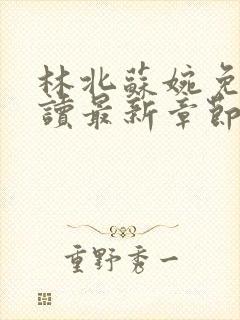 林北蘇婉免
讀最新章節
重野秀一